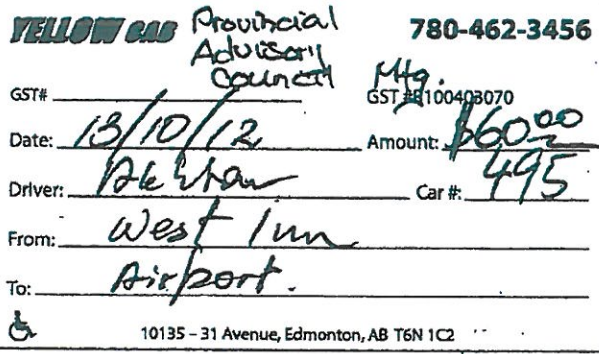 YELLOW CAB Provincial 780-462-3456
Advisory
Council Mtg.
GST# GST #R100403070
Date: 13/10/12 Amount: $60.00
Driver: Car #: 495
From: West Inn
To: Airport.
10135 – 31 Avenue, Edmonton, AB T6N 1C2